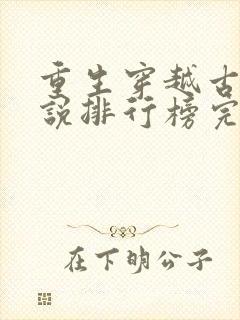 重生穿越古
說排行榜完
在下明公子